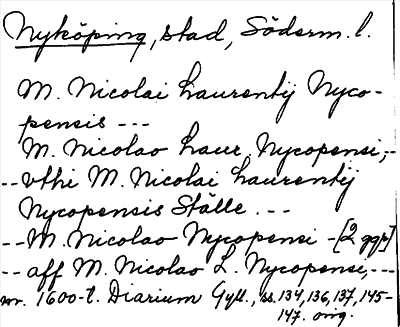 Nyköping, stad, Söderm. l.
M. Nicolai Laurentij Nyco-
pensis ---
M. Nicolao Laur. Nycopensi,--
-- vthi M. Nicolai Laurentij
Nycopensis Ställe. ---
-- M. Nicolao Nycopensi - [2 ggr]
-- aff M. Nicolao L. Nycopense,---
1600-t. Diarium Gyll., ss. 134, 136, 137, 145-
147. orig.